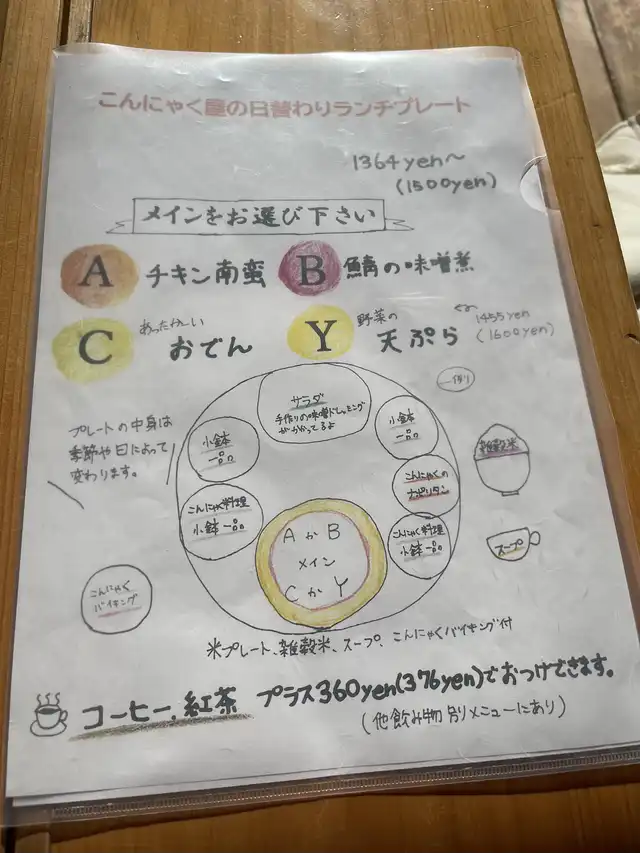 こんにゃく屋の日替わりランチプレート
1364yen～
(1500yen)
メインをお選び下さい
A チキン南蛮
B 鯖の味噌煮
C あったか〜い おでん
Y 野菜の 天ぷら
1455yen
(1600yen)
プレートの中身は
季節や日によって
変わります。
サラダ
手作りの味噌ドレッシング
がかかってるよ
小鉢
一品
小鉢
一品
こんにゃく料理
小鉢一品
こんにゃくの
ナポリタン
こんにゃく料理
小鉢一品
AかB
メイン
CかY
雑穀米
スープ
こんにゃく
バイキング
米プレート、雑穀米、スープ、こんにゃくバイキング付
コーヒー、紅茶 プラス360yen(376yen)でおつけできます。
(他飲み物別メニューにあり)